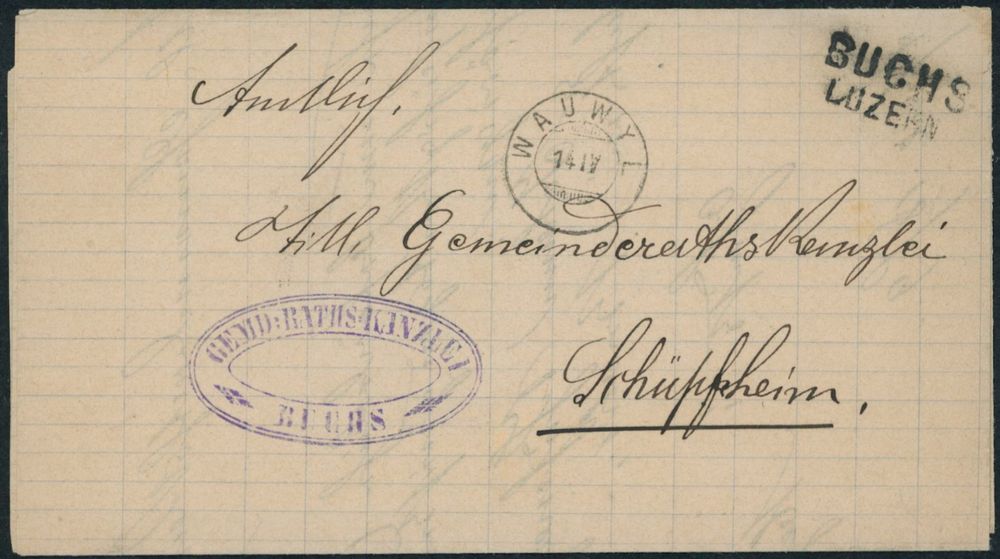 BUCHS
LUZERN
Amtlich.
WAUWYL
14 IV
Titl. GemeinderathsKanzlei
GEMD: RATHS-KANZLEI
BUCHS
Schüpfheim.